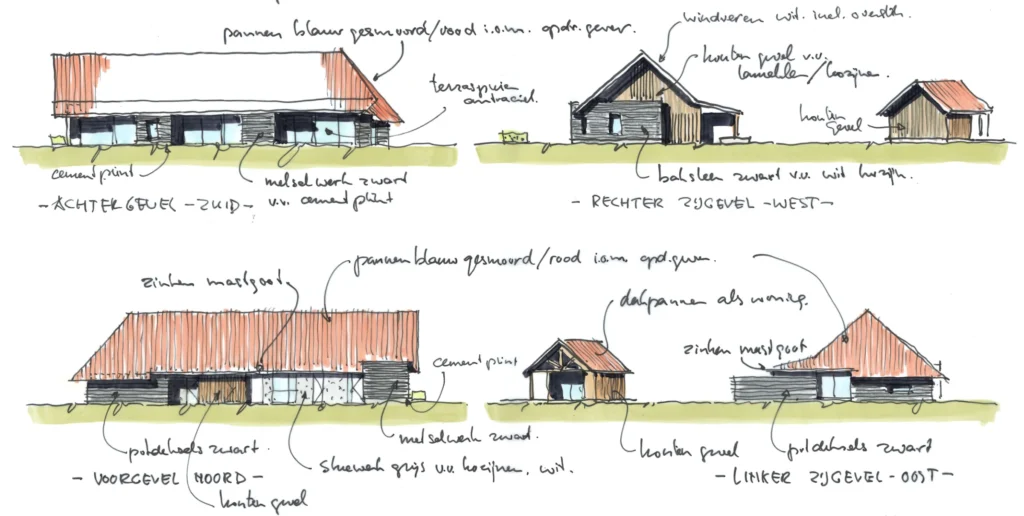 pannen blauw gesmoord/rood i.o.m. opdr.gever.
terraspuien
antraciet.
cementplint
metselwerk zwart
v.v. cementplint
- ACHTERGEVEL - ZUID -
windveren wit. incl. overstek.
houten gevel v.v.
lamellen/kozijnen.
houten
gevel
baksteen zwart v.v. wit kozijn.
- RECHTER ZIJGEVEL - WEST -
pannen blauw gesmoord/rood i.o.m. opd.gever.
zinken mastgoot
cementplint
potdeksels zwart.
metselwerk zwart.
stucwerk grijs v.v. kozijnen. wit.
- VOORGEVEL NOORD -
houten gevel
dakpannen als woning.
zinken mastgoot
houten gevel
potdeksels zwart
- LINKER ZIJGEVEL - OOST -